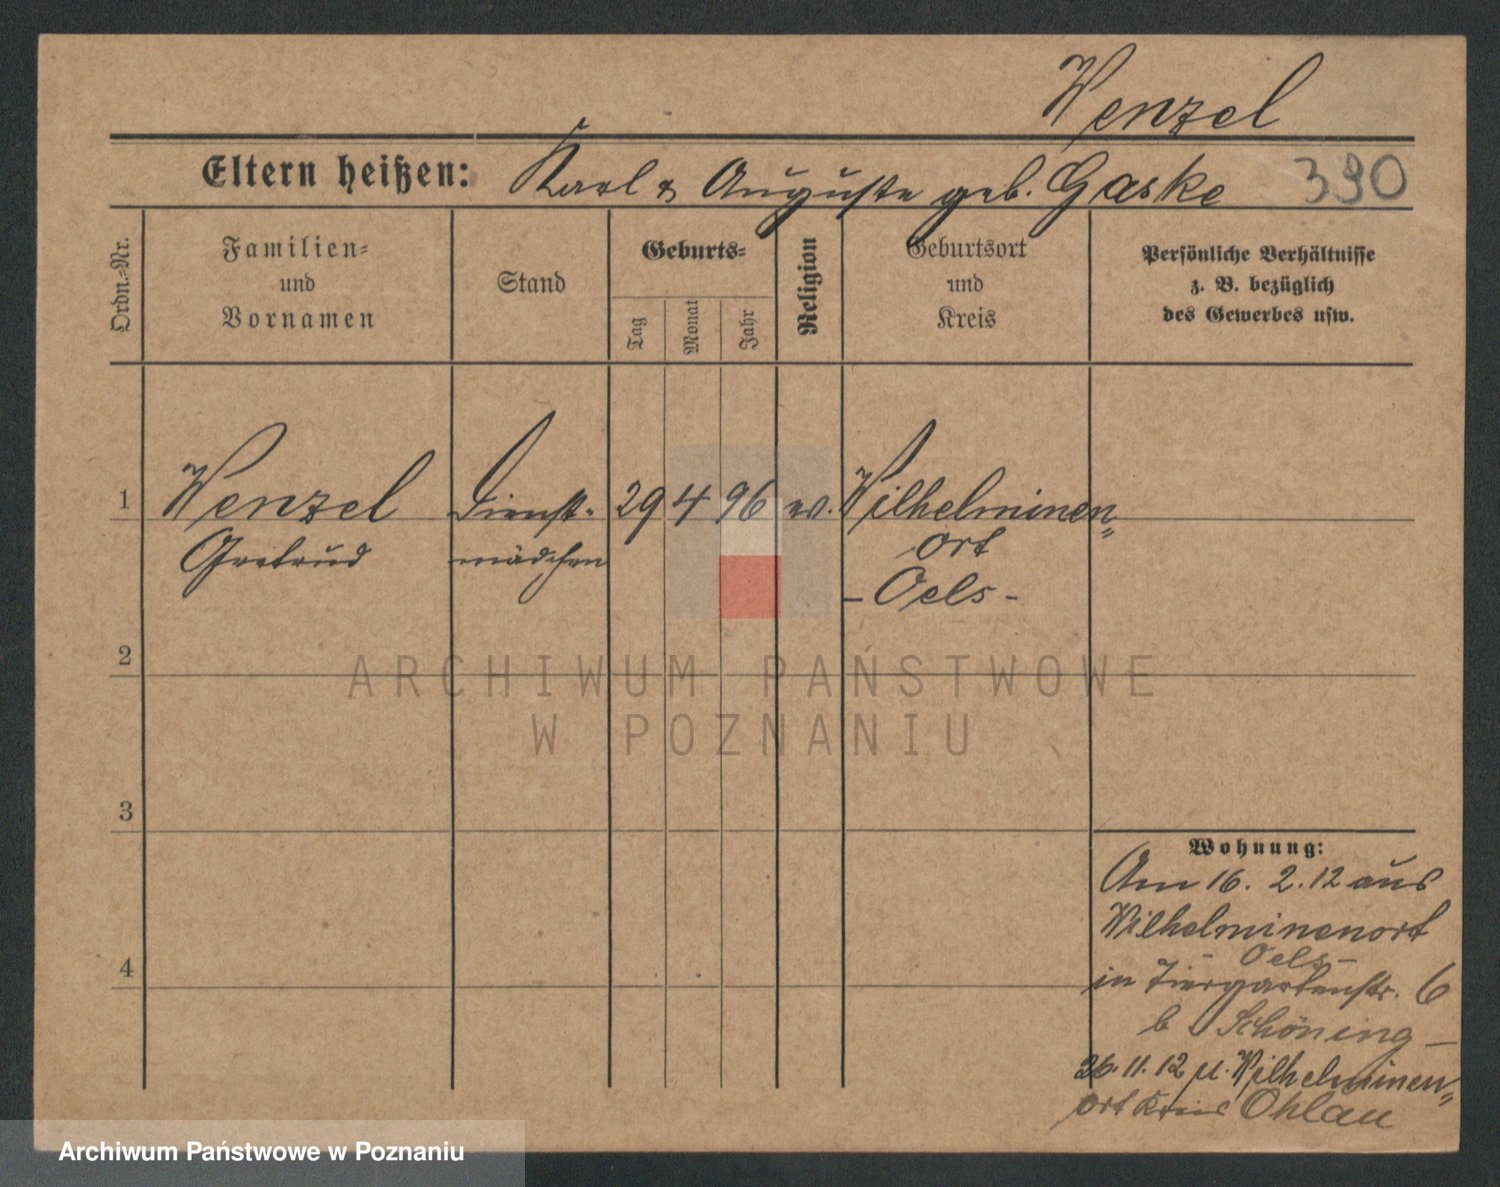 Wenzel
Eltern heißen: Karl & Auguste geb. Gaske 390
Ordn.-Nr.
Familien-
und
Vornamen
Stand
Geburts-
Tag
Monat
Jahr
Religion
Geburtsort
und
Kreis
Persönliche Verhältnisse
z. B. bezüglich
des Gewerbes usw.
1 Wenzel Dienst- 29 4 96 ev. Wilhelminen"
Gertrud mädchen ort
- Oels -
2
3
4
Wohnung:
Am 16. 2. 12 aus
Wilhelminenort
- Oels -
in Tiergartenstr. 6
b Schöning -
26. 11. 12 n. Wilhelminen"
ort Kreis Ohlau
ARCHIWUM PAŃSTWOWE
W POZNANIU
Archiwum Państwowe w Poznaniu